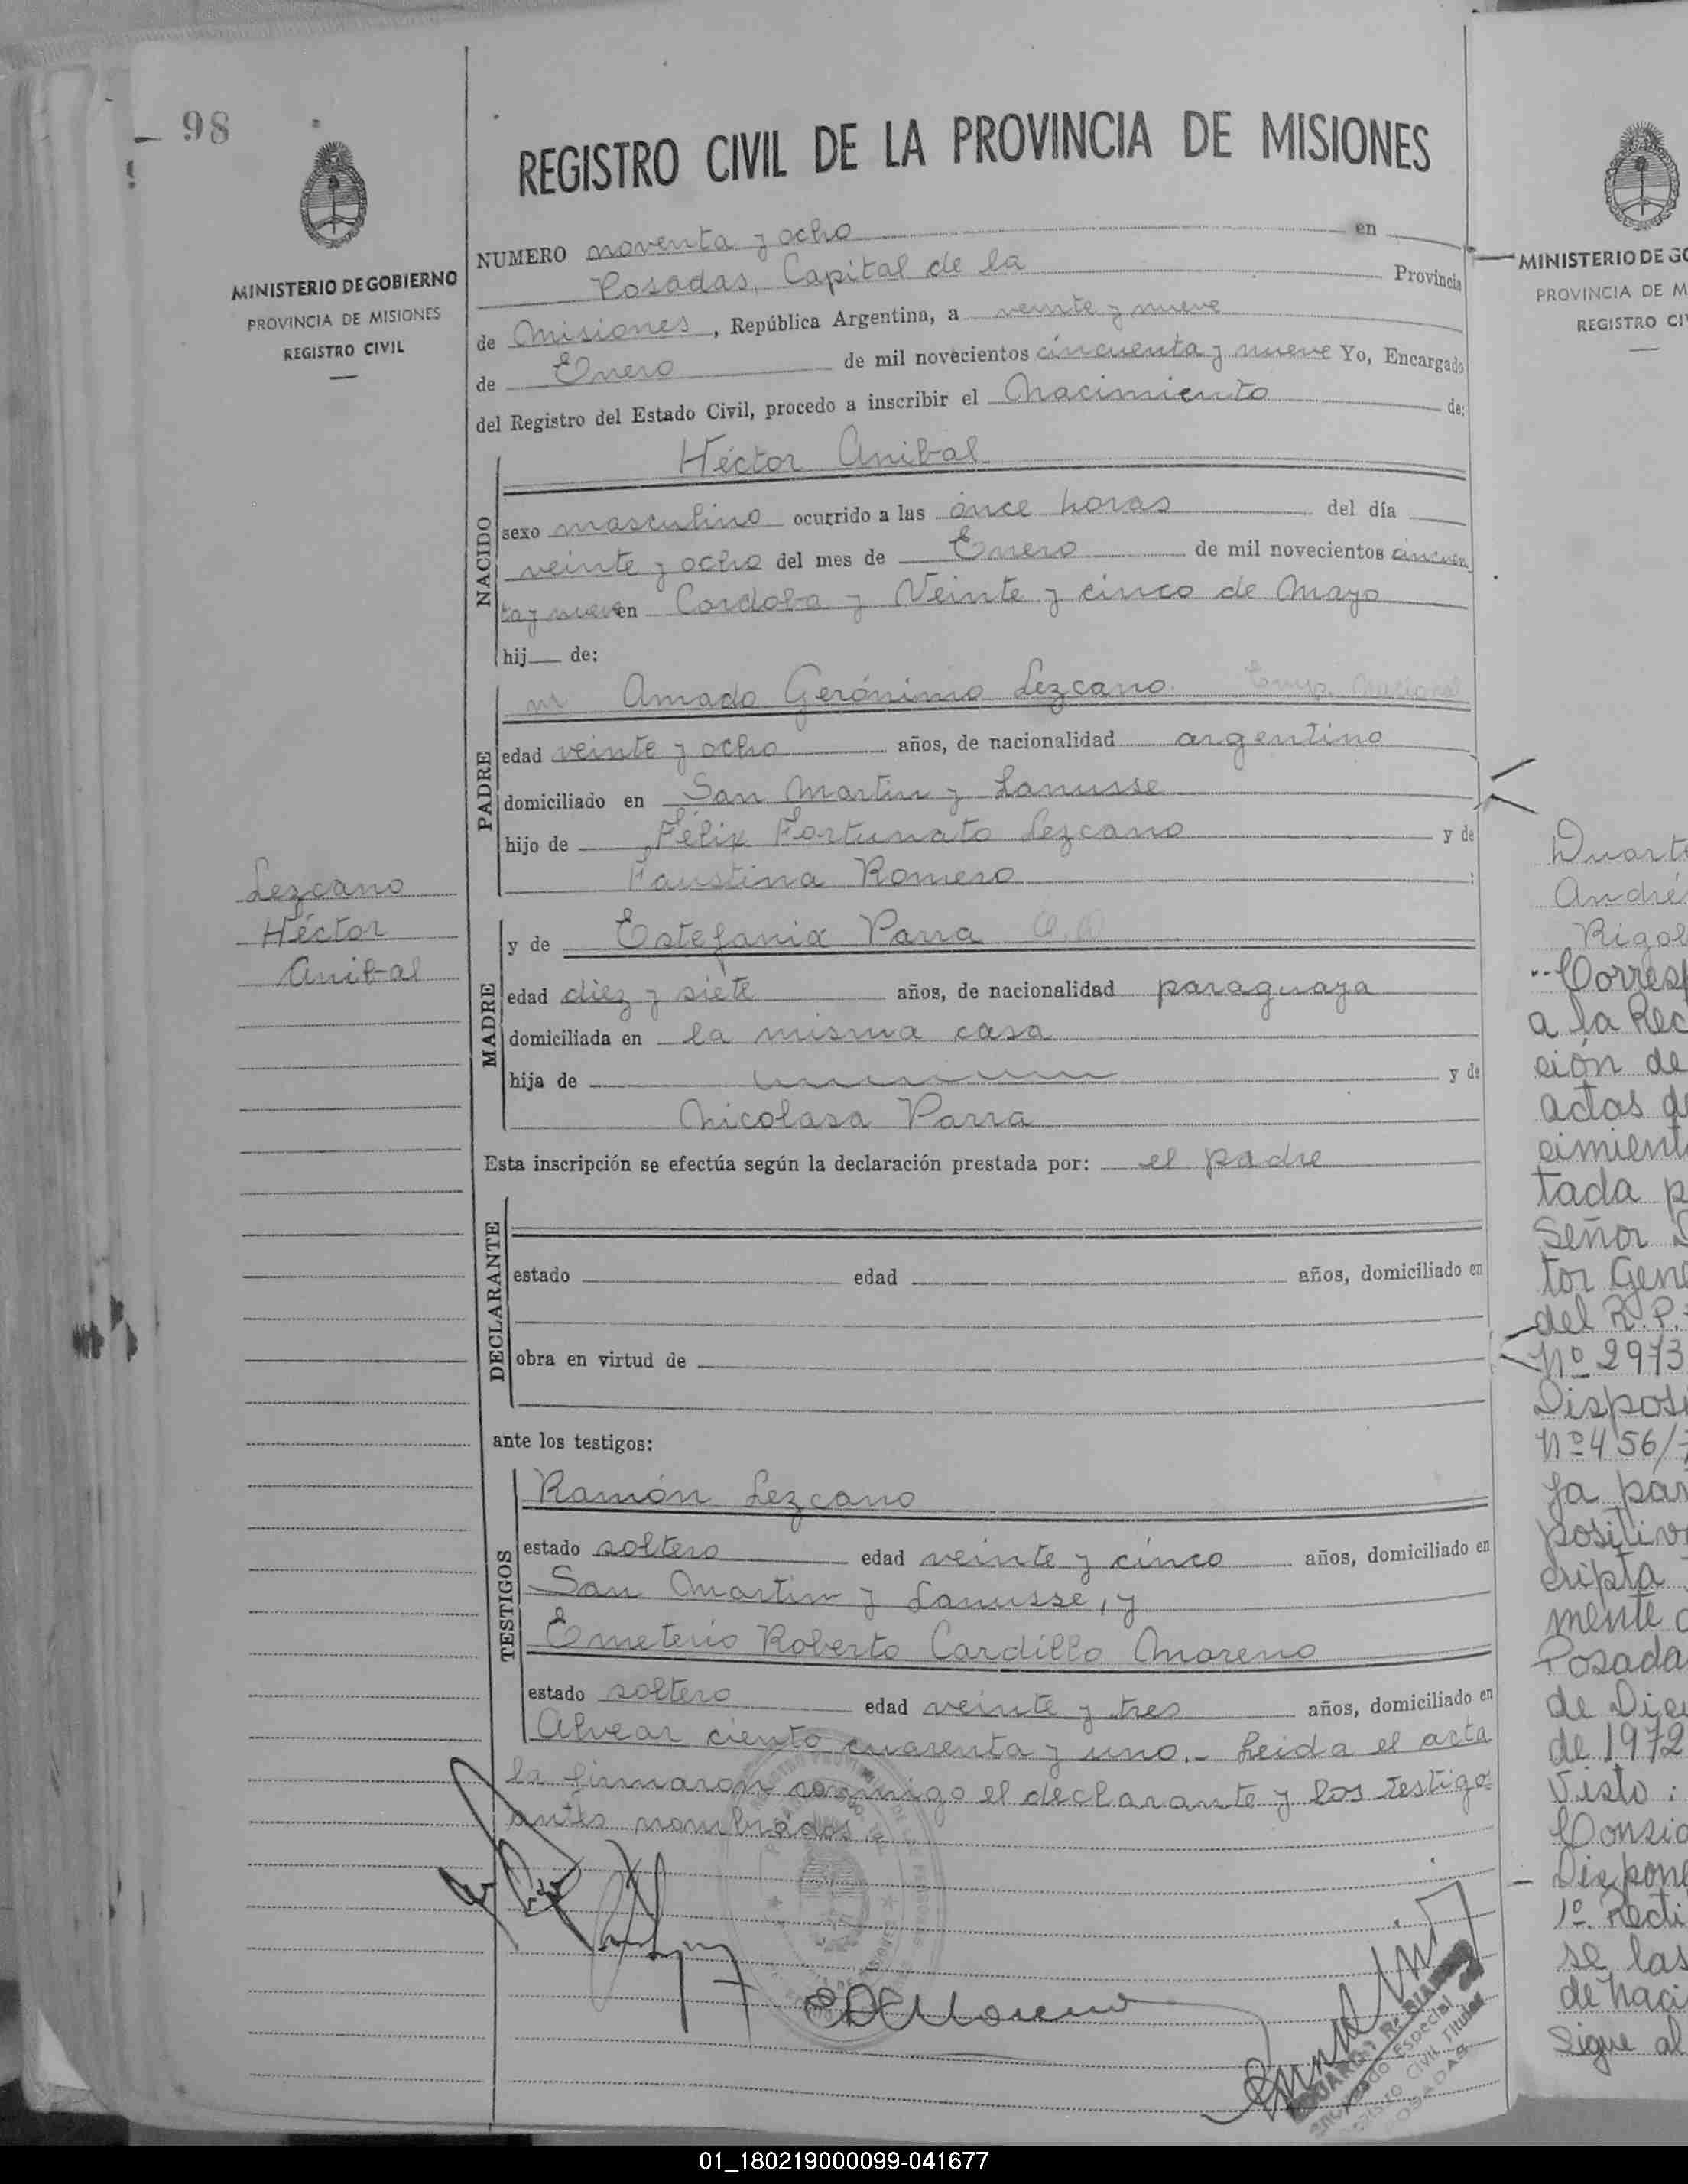 98
MINISTERIO DE GOBIERNO
PROVINCIA DE MISIONES
REGISTRO CIVIL
Lezcano
Héctor
Anibal
REGISTRO CIVIL DE LA PROVINCIA DE MISIONES
NUMERO noventa y ocho en
Posadas, Capital de la Provincia
de Misiones, República Argentina, a veinte y nueve
de Enero de mil novecientos cincuenta y nueve Yo, Encargado
del Registro del Estado Civil, procedo a inscribir el Nacimiento de:
Héctor Anibal
NACIDO
sexo masculino ocurrido a las once horas del día
veinte y ocho del mes de Enero de mil novecientos cincuen
ta y nueve en Cordoba y Veinte y cinco de Mayo
hij de:
PADRE
Amado Gerónimo Lezcano
edad veinte y ocho años, de nacionalidad argentino
domiciliado en San Martin y Lanusse
hijo de Félix Fortunato Lezcano y de
Faustina Romero
MADRE
y de Estefania Parra
edad diez y siete años, de nacionalidad paraguaya
domiciliada en la misma casa
hija de y de
Nicolasa Parra
Esta inscripción se efectúa según la declaración prestada por: el padre
DECLARANTE
estado edad años, domiciliado en
obra en virtud de
ante los testigos:
TESTIGOS
Ramón Lezcano
estado soltero edad veinte y cinco años, domiciliado en
San Martin y Lanusse, y
Emeterio Roberto Cardillo Moreno
estado soltero edad veinte y tres años, domiciliado en
Alvear ciento cuarenta y uno.- Leida el acta
la firmaron conmigo el declarante y los testigos
antes nombrados
MINISTERIO DE GO
PROVINCIA DE M
REGISTRO CI
Duarte
André
Rigol
Corresp
a la Rec
ción de
actas d
cimient
tada p
Señor D
tor Gene
del R. P.
Nº 2973
Disposi
Nº 456/
ja par
positiv
cripta
mente
Posada
de Dici
de 1972
Visto:
Consid
Dispone
1º Recti
se las
de naci
Sigue al
01_180219000099-041677